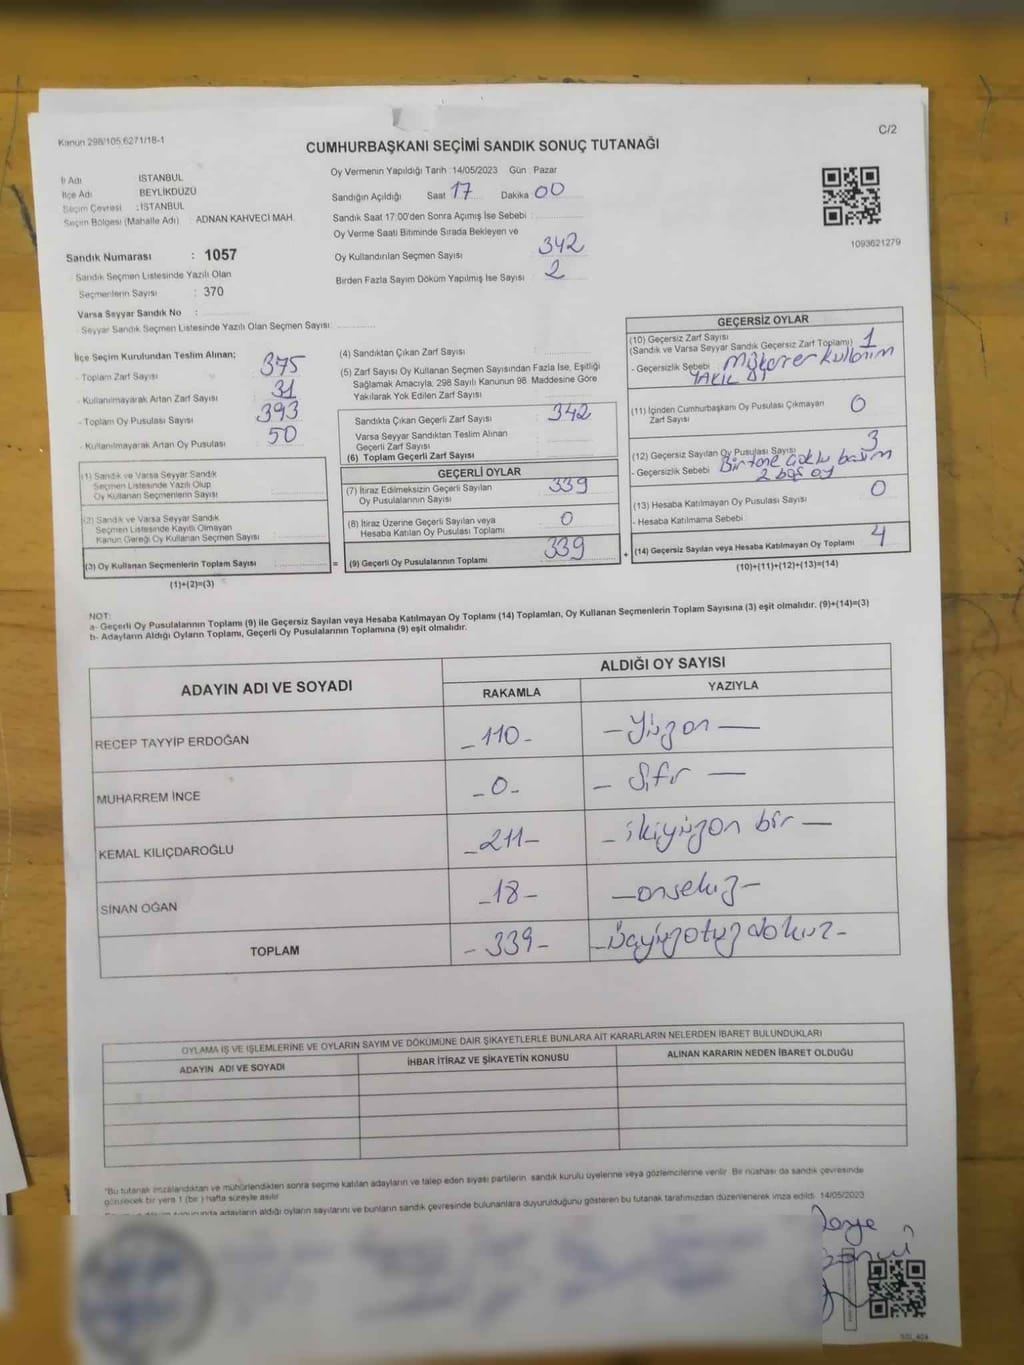 Kanun 298/105,6271/18-1
C/2
CUMHURBAŞKANI SEÇİMİ SANDIK SONUÇ TUTANAĞI
Oy Vermenin Yapıldığı Tarih :14/05/2023 Gün : Pazar
İl Adı : İSTANBUL
İlçe Adı : BEYLİKDÜZÜ
Seçim Çevresi : İSTANBUL
Seçim Bölgesi (Mahalle Adı) : ADNAN KAHVECİ MAH.
Sandığın Açıldığı Saat 17 Dakika 00
Sandık Saat 17:00'den Sonra Açımış İse Sebebi :
Oy Verme Saati Bitiminde Sırada Bekleyen ve
Oy Kullandırılan Seçmen Sayısı 342
Birden Fazla Sayım Döküm Yapılmış İse Sayısı 2
1093621279
Sandık Numarası : 1057
Sandık Seçmen Listesinde Yazılı Olan
Seçmenlerin Sayısı : 370
Varsa Seyyar Sandık No :
Seyyar Sandık Seçmen Listesinde Yazılı Olan Seçmen Sayısı:
İlçe Seçim Kurulundan Teslim Alınan;
- Toplam Zarf Sayısı 375
- Kullanılmayarak Artan Zarf Sayısı 31
- Toplam Oy Pusulası Sayısı 393
- Kullanılmayarak Artan Oy Pusulası 50
(1) Sandık ve Varsa Seyyar Sandık
Seçmen Listesinde Yazılı Olup
Oy Kullanan Seçmenlerin Sayısı
(2) Sandık ve Varsa Seyyar Sandık
Seçmen Listesinde Kayıtlı Olmayan
Kanun Gereği Oy Kullanan Seçmen Sayısı :
(3) Oy Kullanan Seçmenlerin Toplam Sayısı
(1)+(2)=(3)
(4) Sandıktan Çıkan Zarf Sayısı
(5) Zarf Sayısı Oy Kullanan Seçmen Sayısından Fazla İse, Eşitliği
Sağlamak Amacıyla, 298 Sayılı Kanunun 98. Maddesine Göre
Yakılarak Yok Edilen Zarf Sayısı
Sandıkta Çıkan Geçerli Zarf Sayısı 342
Varsa Seyyar Sandıktan Teslim Alınan
Geçerli Zarf Sayısı
(6) Toplam Geçerli Zarf Sayısı
GEÇERLİ OYLAR
(7) İtiraz Edilmeksizin Geçerli Sayılan
Oy Pusulalarının Sayısı 339
(8) İtiraz Üzerine Geçerli Sayılan veya
Hesaba Katılan Oy Pusulası Toplamı 0
= (9) Geçerli Oy Pusulalarının Toplamı 339 +
GEÇERSİZ OYLAR
(10) Geçersiz Zarf Sayısı
(Sandık ve Varsa Seyyar Sandık Geçersiz Zarf Toplamı) 1
- Geçersizlik Sebebi : Mükerrer Kullanım
(11) İçinden Cumhurbaşkanı Oy Pusulası Çıkmayan
Zarf Sayısı 0
(12) Geçersiz Sayılan Oy Pusulası Sayısı 3
- Geçersizlik Sebebi Bir tane çoklu basım
2 boş oy
(13) Hesaba Katılmayan Oy Pusulası Sayısı 0
- Hesaba Katılmama Sebebi
(14) Geçersiz Sayılan veya Hesaba Katılmayan Oy Toplamı 4
(10)+(11)+(12)+(13)=(14)
NOT:
a- Geçerli Oy Pusulalarının Toplamı (9) ile Geçersiz Sayılan veya Hesaba Katılmayan Oy Toplamı (14) Toplamları, Oy Kullanan Seçmenlerin Toplam Sayısına (3) eşit olmalıdır. (9)+(14)=(3)
b- Adayların Aldığı Oyların Toplamı, Geçerli Oy Pusulalarının Toplamına (9) eşit olmalıdır.
ADAYIN ADI VE SOYADI
ALDIĞI OY SAYISI
RAKAMLA YAZIYLA
RECEP TAYYİP ERDOĞAN - 110 - - Yüzon -
MUHARREM İNCE - 0 - - Sıfır -
KEMAL KILIÇDAROĞLU - 211 - - ikiyüzon bir -
SİNAN OĞAN - 18 - - onsekiz -
TOPLAM - 339 - - üçyüzotuzdokuz -
OYLAMA İŞ VE İŞLEMLERİNE VE OYLARIN SAYIM VE DÖKÜMÜNE DAİR ŞİKAYETLERLE BUNLARA AİT KARARLARIN NELERDEN İBARET BULUNDUKLARI
ADAYIN ADI VE SOYADI İHBAR İTİRAZ VE ŞİKAYETİN KONUSU ALINAN KARARIN NEDEN İBARET OLDUĞU
*Bu tutanak imzalandıktan ve mühürlendikten sonra seçime katılan adayların ve talep eden siyasi partilerin sandık kurulu üyelerine veya gözlemcilerine verilir. Bir nüshası da sandık çevresinde
görülecek bir yere 1 (bir) hafta süreyle asılır.
adayların aldığı oyların sayılarını ve bunların sandık çevresinde bulunanlara duyurulduğunu gösteren bu tutanak tarafımızdan düzenlenerek imza edildi. 14/05/2023